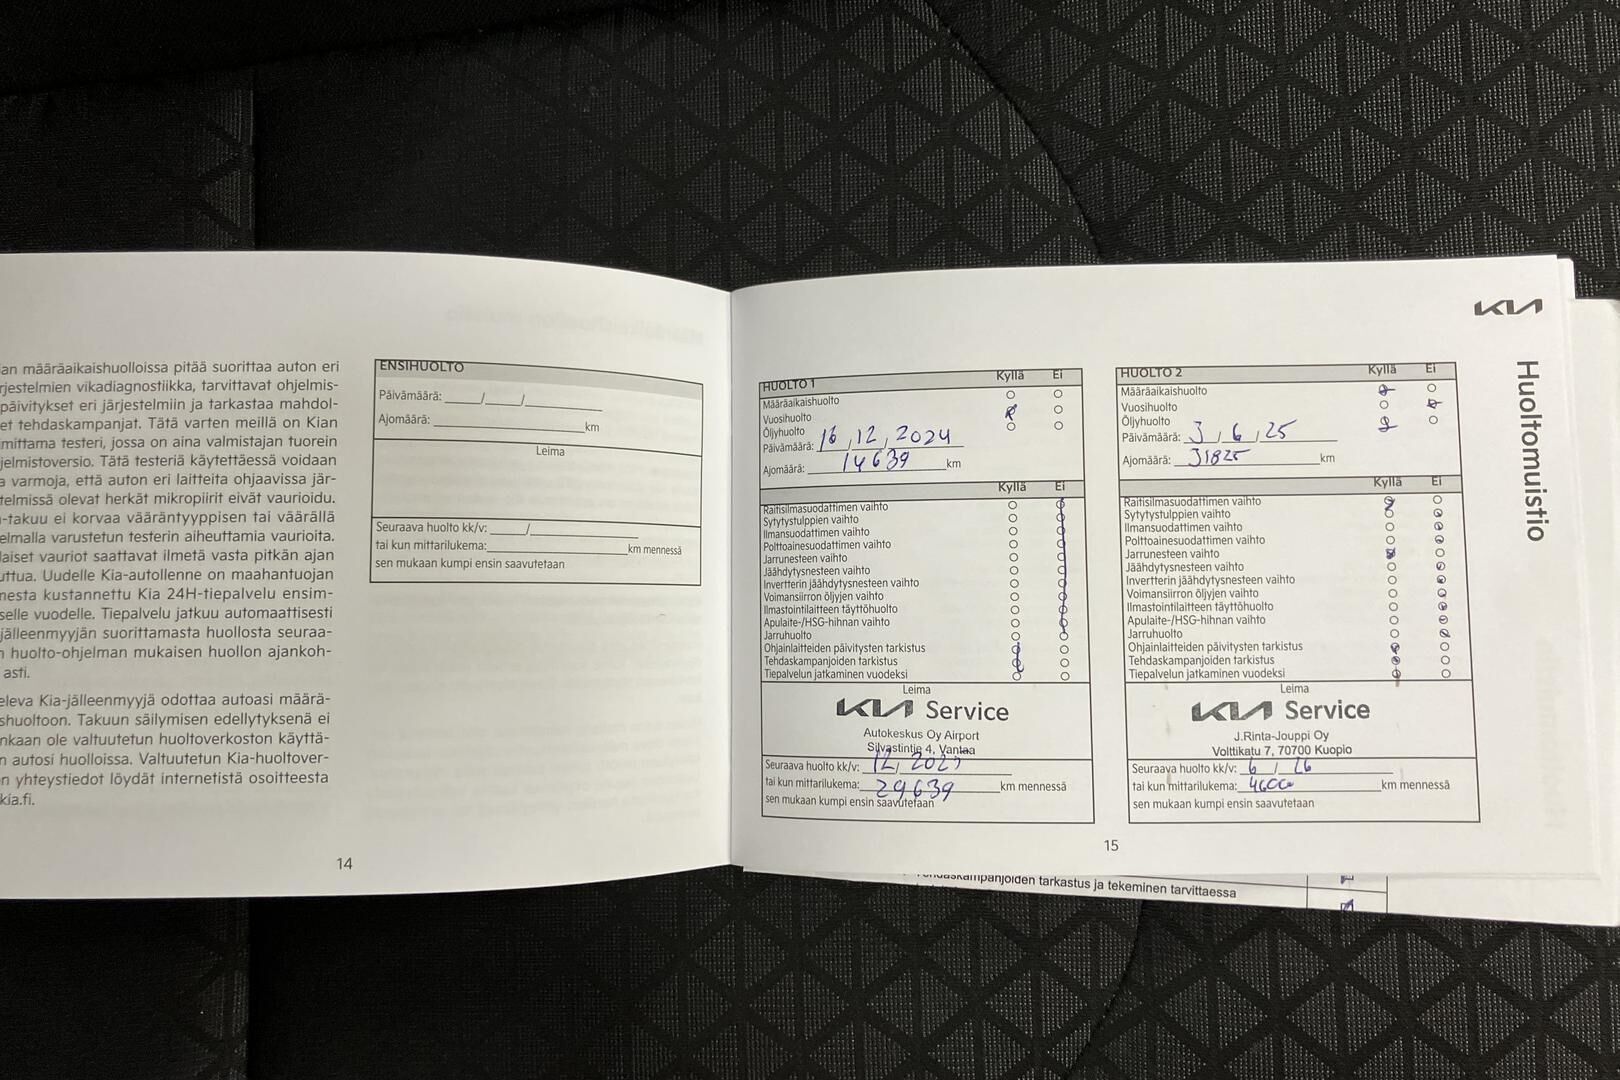 an määräaikaishuolloissa pitää suorittaa auton eri
rjestelmien vikadiagnostiikka, tarvittavat ohjelmis-
päivitykset eri järjestelmiin ja tarkastaa mahdol-
et tehdaskampanjat. Tätä varten meillä on Kian
imittama testeri, jossa on aina valmistajan tuorein
jelmistoversio. Tätä testeriä käytettäessä voidaan
a varmoja, että auton eri laitteita ohjaavissa jär-
telmissä olevat herkät mikropiirit eivät vaurioidu.
-takuu ei korvaa vääräntyyppisen tai väärällä
elmalla varustetun testerin aiheuttamia vaurioita.
laiset vauriot saattavat ilmetä vasta pitkän ajan
uttua. Uudelle Kia-autollenne on maahantuojan
mesta kustannettu Kia 24H-tiepalvelu ensim-
selle vuodelle. Tiepalvelu jatkuu automaattisesti
jälleenmyyjän suorittamasta huollosta seuraa-
n huolto-ohjelman mukaisen huollon ajankoh-
asti.
eleva Kia-jälleenmyyjä odottaa autoasi määrä-
shuoltoon. Takuun säilymisen edellytyksenä ei
nkaan ole valtuutetun huoltoverkoston käyttä-
n autosi huolloissa. Valtuutetun Kia-huoltover-
n yhteystiedot löydät internetistä osoitteesta
kia.fi.
14
ENSIHUOLTO
Päivämäärä: ____/____/____
Ajomäärä: ____ km
Leima
Seuraava huolto kk/v: ____/____
tai kun mittarilukema: ____ km mennessä
sen mukaan kumpi ensin saavutetaan
HUOLTO 1 Kyllä Ei
Määräaikaishuolto
Vuosihuolto
Öljyhuolto
Päivämäärä: 16, 12, 2024
Ajomäärä: 14639 km
Kyllä Ei
Raitisilmasuodattimen vaihto
Sytytystulppien vaihto
Ilmansuodattimen vaihto
Polttoainesuodattimen vaihto
Jarrunesteen vaihto
Jäähdytysnesteen vaihto
Invertterin jäähdytysnesteen vaihto
Voimansiirron öljyjen vaihto
Ilmastointilaitteen täyttöhuolto
Apulaite-/HSG-hihnan vaihto
Jarruhuolto
Ohjainlaitteiden päivitysten tarkistus
Tehdaskampanjoiden tarkistus
Tiepalvelun jatkaminen vuodeksi
Leima
KIA Service
Autokeskus Oy Airport
Silvastintie 4, Vantaa
Seuraava huolto kk/v: 12, 2025
tai kun mittarilukema: 29639 km mennessä
sen mukaan kumpi ensin saavutetaan
HUOLTO 2 Kyllä Ei
Määräaikaishuolto
Vuosihuolto
Öljyhuolto
Päivämäärä: 3, 6, 25
Ajomäärä: 31825 km
Kyllä Ei
Raitisilmasuodattimen vaihto
Sytytystulppien vaihto
Ilmansuodattimen vaihto
Polttoainesuodattimen vaihto
Jarrunesteen vaihto
Jäähdytysnesteen vaihto
Invertterin jäähdytysnesteen vaihto
Voimansiirron öljyjen vaihto
Ilmastointilaitteen täyttöhuolto
Apulaite-/HSG-hihnan vaihto
Jarruhuolto
Ohjainlaitteiden päivitysten tarkistus
Tehdaskampanjoiden tarkistus
Tiepalvelun jatkaminen vuodeksi
Leima
KIA Service
J.Rinta-Jouppi Oy
Volttikatu 7, 70700 Kuopio
Seuraava huolto kk/v: 6 / 26
tai kun mittarilukema: 46000 km mennessä
sen mukaan kumpi ensin saavutetaan
15
KIA
Huoltomuistio
Tehdaskampanjoiden tarkastus ja tekeminen tarvittaessa